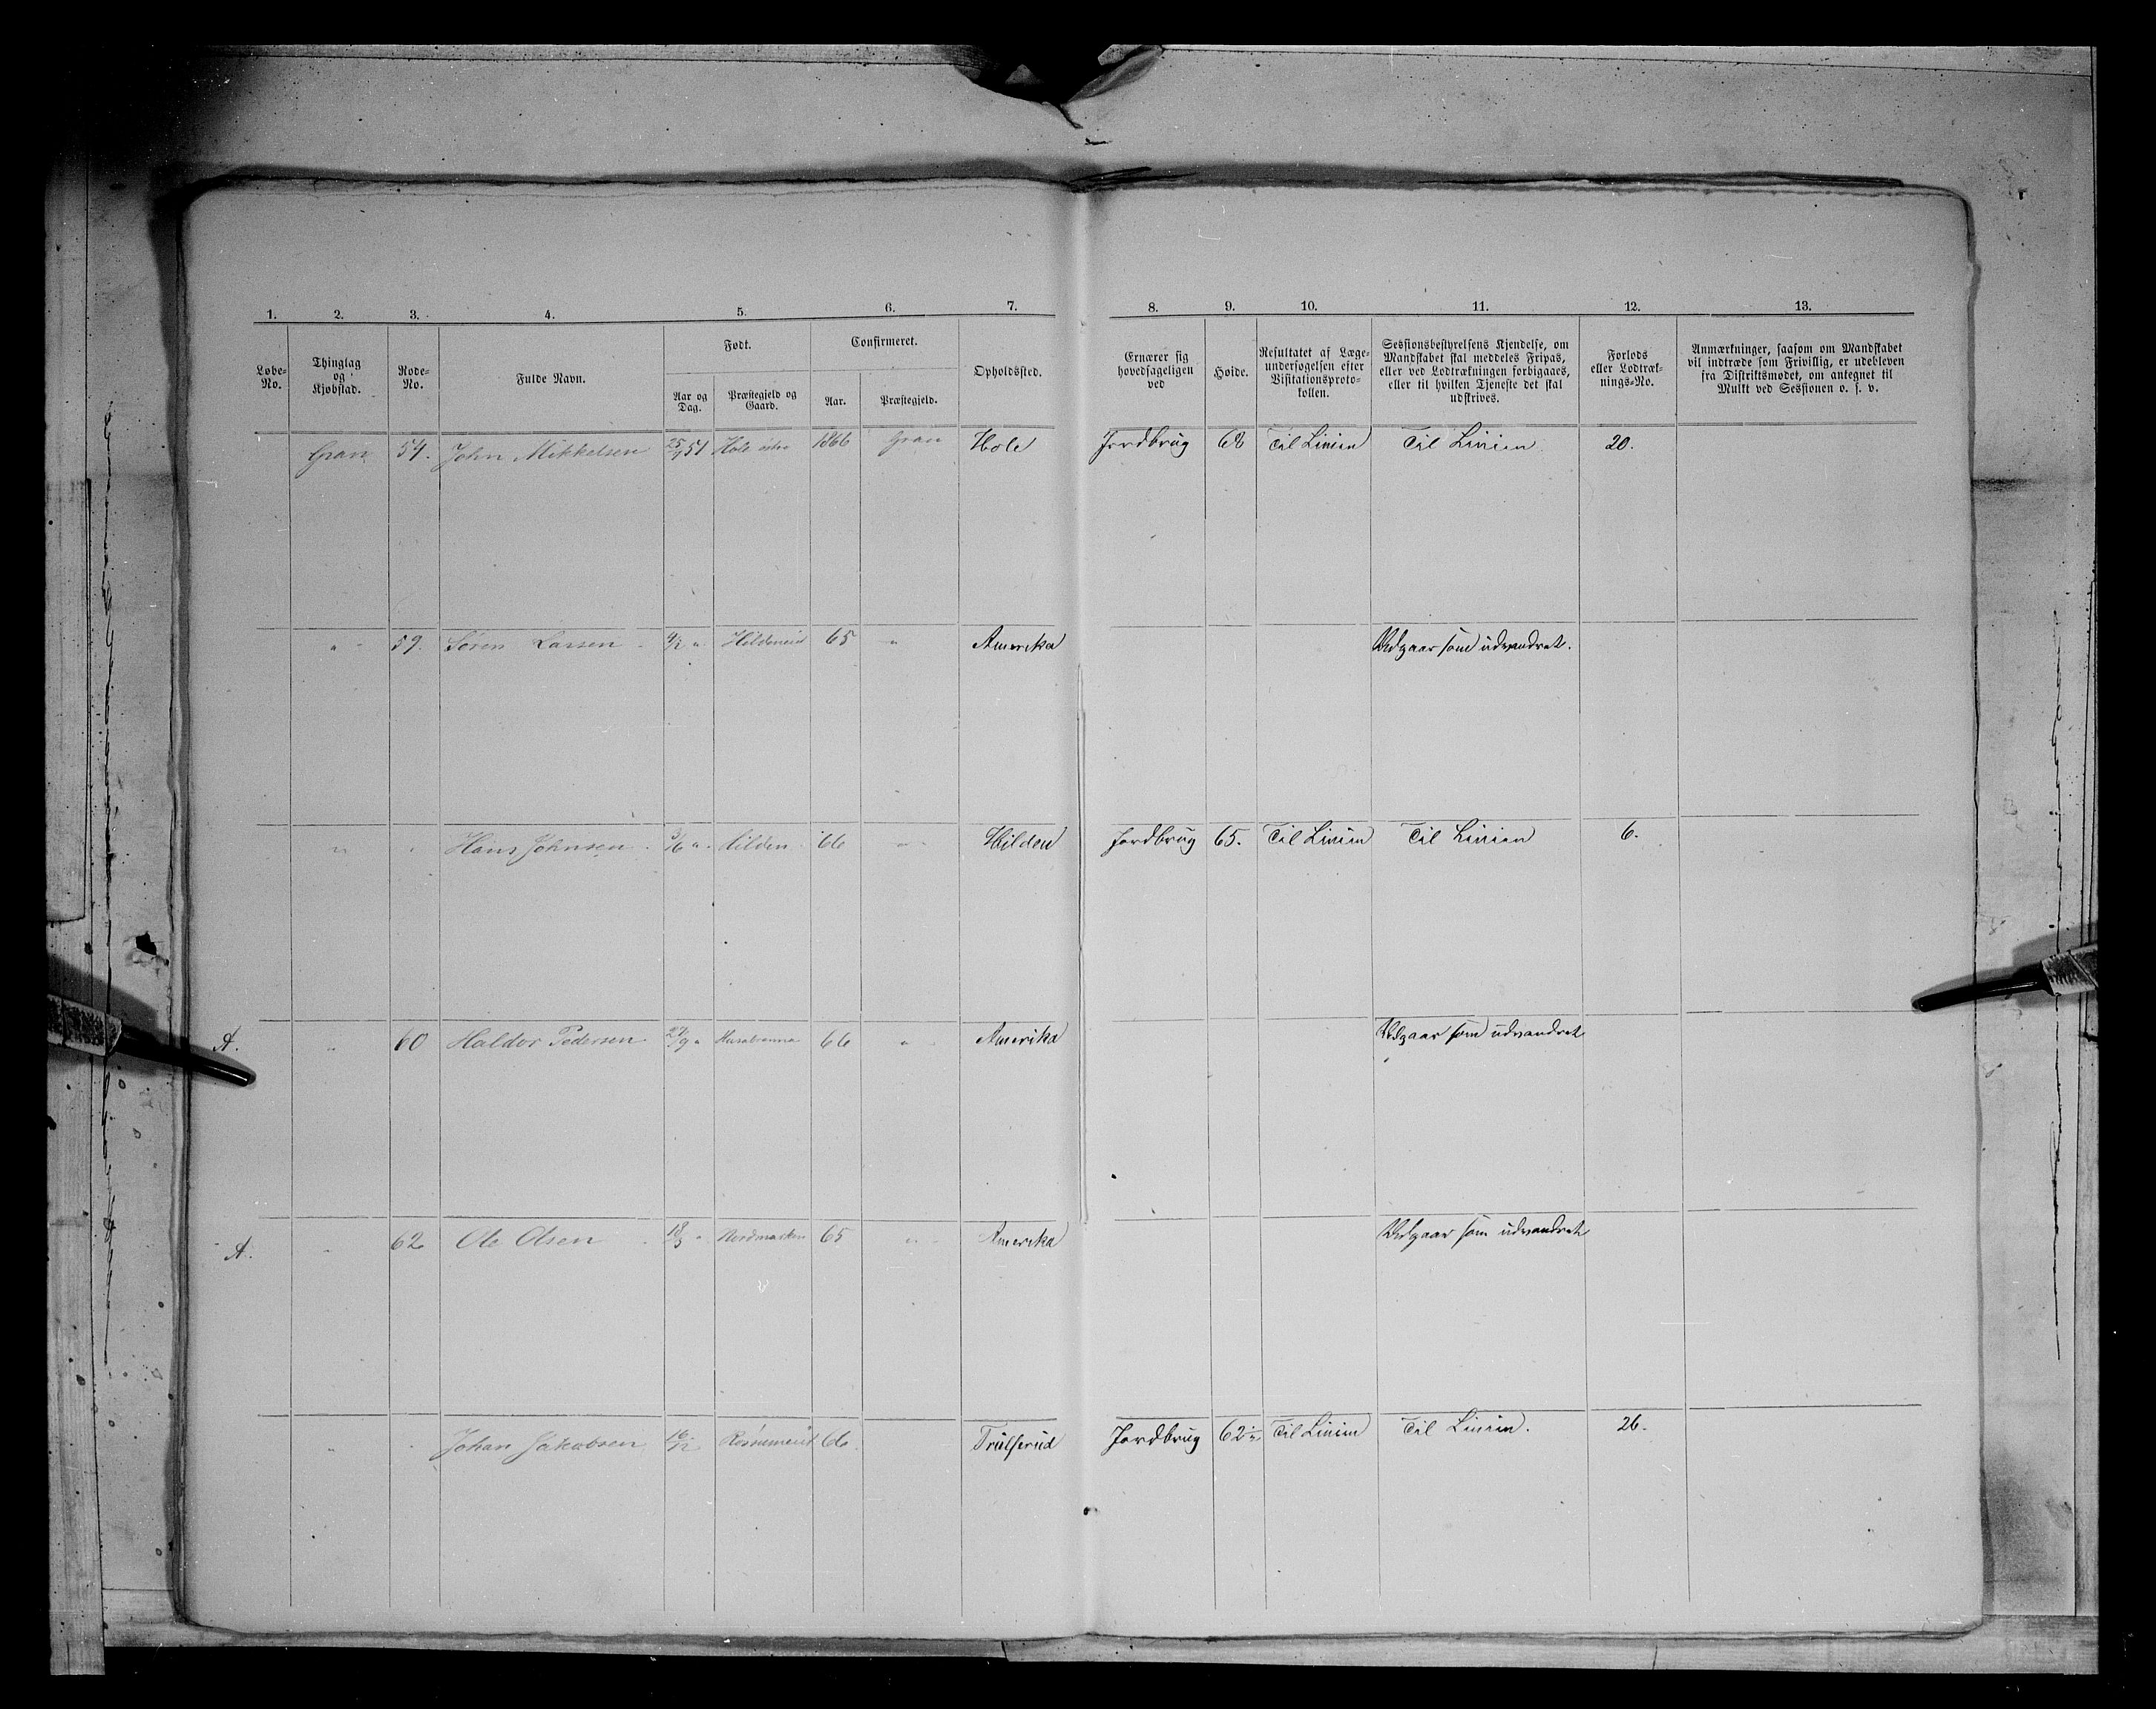 1. 2. 3. 4. 5. 6. 7. 8. 9. 10. 11. 12. 13.
Løbe-No.
Thinglag og Kjøbstad.
Rode-No.
Fulde Navn.
Født.
Aar og Dag.
Præstegjeld og Gaard.
Confirmeret.
Aar.
Præstegjeld.
Opholdssted.
Ernærer sig hovedsageligen ved
Høide.
Resultatet af Læge-undersøgelsen efter Visitationsproto-kollen.
Sessionsbestyrelsens Kjendelse, om Mandskabet skal meddeles Fripas, eller ved Lodtrækningen forbigaaes, eller til hvilken Tjeneste det skal udskrives.
Forlods eller Lodtræk-nings-No.
Anmærkninger, saasom om Mandskabet vil indtræde som Frivillig, er udebleven fra Distriktsmødet, om antegnet til Mulkt ved Sessionen o. s. v.
Gran 54. John Mikkelsen 51 Hole 1866 Gran Hole Jordbrug 68 Til Linien Til Linien 20.
" 59. Søren Larsen " 65 " Amerika Udgaar som udvandret.
" " Hans Johnsen 3/6 " Hilden 66 " Hilden Jordbrug 65. Til Linien Til Linien 6.
A. " 60 Haldor Pedersen 27/9 " 66 " Amerika Udgaar som udvandret
A. " 62 Ole Olsen 18/3 " 65 " Amerika Udgaar som udvandret
" " Johan Jakobsen 16/12 66 Trulserud Jordbrug 62½ Til Linien Til Linien. 26.